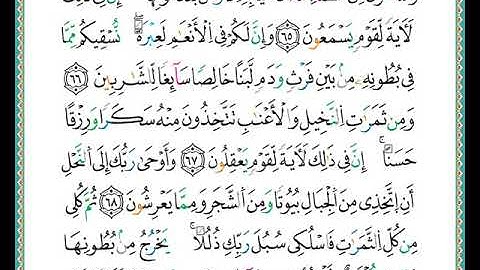 لَأٓيَةً لِّقَوْمٍ يَسْمَعُونَ ٦٥ وَإِنَّ لَكُمْ فِى ٱلْأَنْعَٰمِ لَعِبْرَةً ۖ نُّسْقِيكُم مِّمَّا
فِى بُطُونِهِۦ مِنۢ بَيْنِ فَرْثٍ وَدَمٍ لَّبَنًا خَالِصًا سَآئِغًا لِّلشَّٰرِبِينَ ٦٦
وَمِن ثَمَرَٰتِ ٱلنَّخِيلِ وَٱلْأَعْنَٰبِ تَتَّخِذُونَ مِنْهُ سَكَرًا وَرِزْقًا
حَسَنًا ۗ إِنَّ فِى ذَٰلِكَ لَأٓيَةً لِّقَوْمٍ يَعْقِلُونَ ٦٧ وَأَوْحَىٰ رَبُّكَ إِلَى ٱلنَّحْلِ
أَنِ ٱتَّخِذِى مِنَ ٱلْجِبَالِ بُيُوتًا وَمِنَ ٱلشَّجَرِ وَمِمَّا يَعْرِشُونَ ٦٨ ثُمَّ كُلِى
مِن كُلِّ ٱلثَّمَرَٰتِ فَٱسْلُكِى سُبُلَ رَبِّكِ ذُلُلًا ۚ يَخْرُجُ مِنۢ بُطُونِهَا